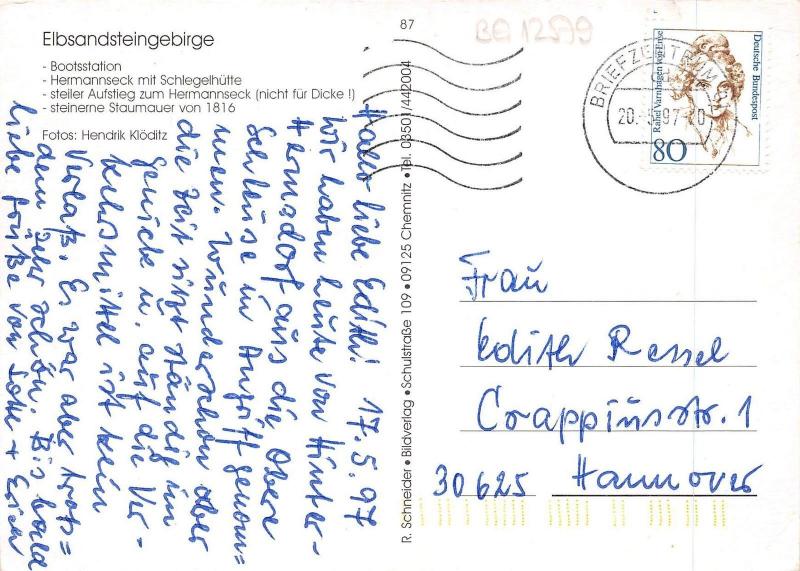 BQ 12579
87
Elbsandsteingebirge
- Bootsstation
- Hermannseck mit Schlegelhütte
- steiler Aufstieg zum Hermannseck (nicht für Dicke !)
- steinerne Staumauer von 1816
Fotos: Hendrik Klöditz
Hallo liebe Edith! 17.5.97
wir haben heute von Hinter-
Hermsdorf aus die Obere
Schleuse in Angriff genom=
men. Wunderschön aber
die Zeit sitzt ständig im
Genick u. auf die Ver-
kehrsmittel ist kein
Verlaß. Es war aber trotz=
dem sehr schön. Bis bald
liebe Grüße von Lotte + Erich
R. Schneider • Bildverlag • Schulstraße 109 • 09125 Chemnitz • Tel. 03501/442004
BRIEFZENTRUM
20.-5.97-20
Deutsche Bundespost
Rahel Varnhagen von Ense
80
Frau
Edith Ressel
Crappiusstr. 1
30625 Hannover